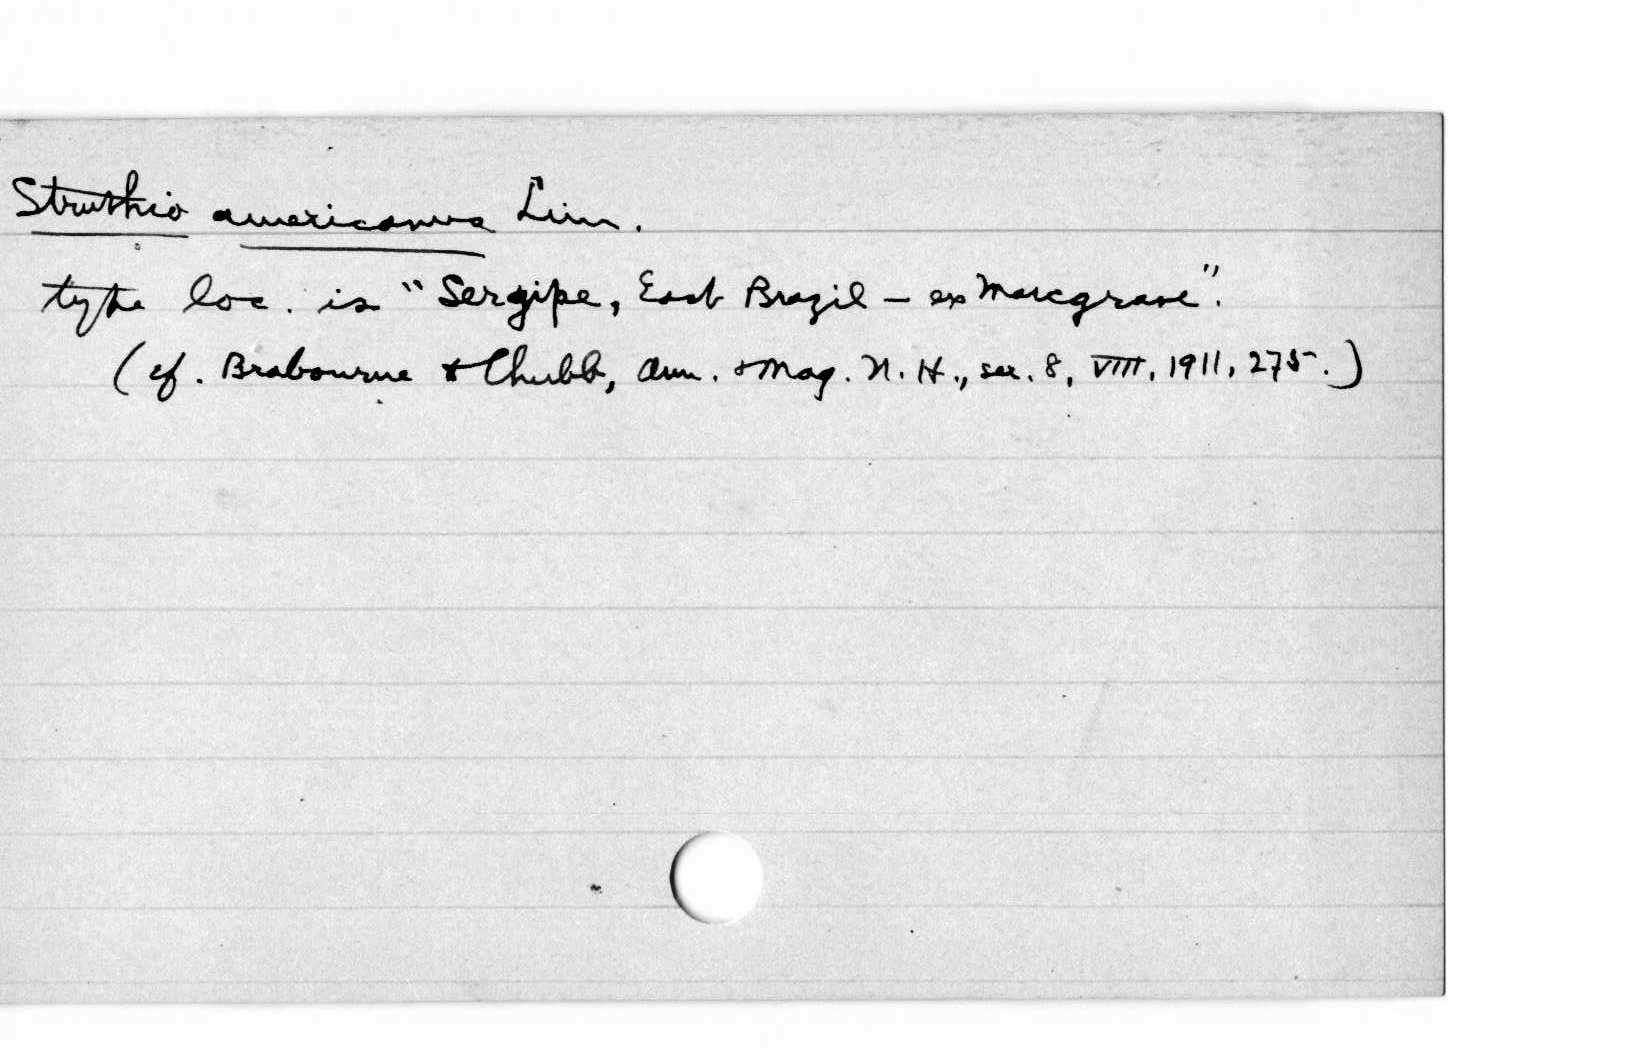 Struthio americanus Linn.
type loc. is "Sergipe, East Brazil – ex Marcgrave".
(cf. Brabourne & Chubb, Ann. & Mag. N. H., ser. 8, VIII, 1911, 275.)